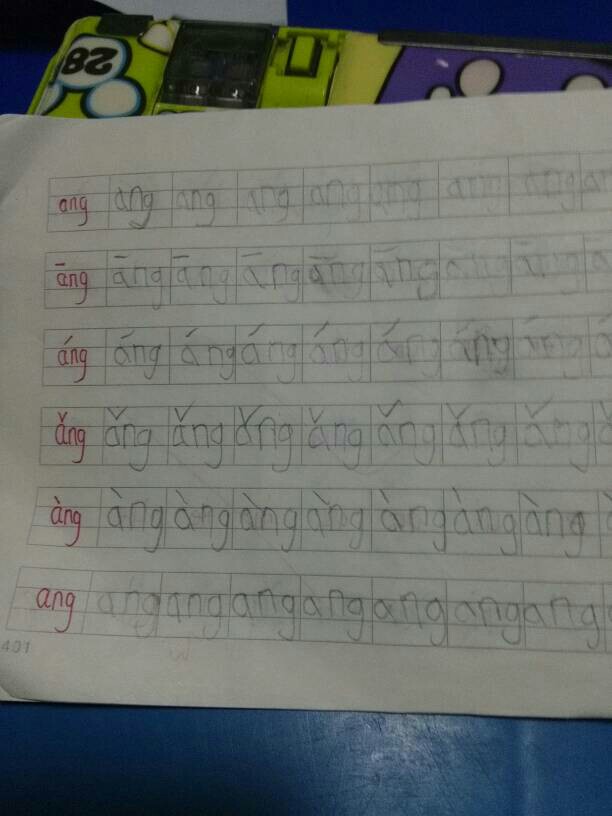 28
ang ang ang ang ang ang ang ang
āng āng āng āng āng āng āng āng
áng áng áng áng áng áng áng áng
ǎng ǎng ǎng ǎng ǎng ǎng ǎng ǎng
àng àng àng àng àng àng àng àng
ang ang ang ang ang ang ang ang
401